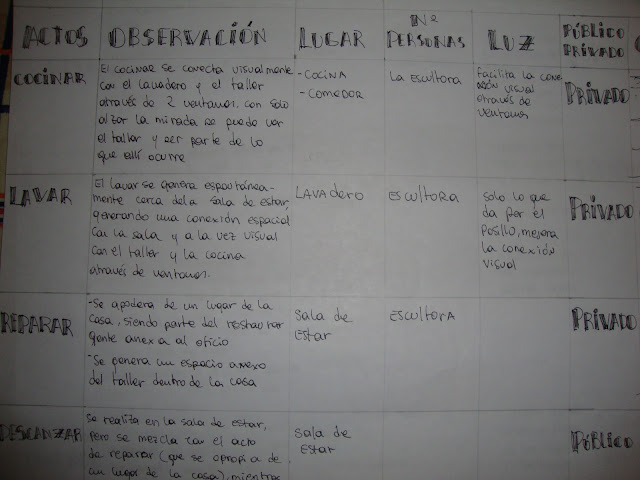 ACTOS OBSERVACIÓN LUGAR Nº PERSONAS LUZ PÚBLICO PRIVADO
COCINAR
El cocinar se conecta visualmente
con el lavadero y el taller
através de 2 ventanas, con solo
alzar la mirada se puede ver
el taller y ser parte de lo
que allí ocurre
- COCINA
- COMEDOR
LA ESCULTORA
facilita la cone
xión visual
através de
ventanas
PRIVADO
LAVAR
El lavar se genera espontánea-
mente cerca de la sala de estar,
generando una conexión espacial
con la sala y a la vez visual
con el taller y la cocina
através de ventanas.
LAVADERO
ESCULTORA
Solo lo que
da por el
pasillo, mejora
la conexión
visual
PRIVADO
REPARAR
-Se apodera de un lugar de la
casa, siendo parte del
gente anexa al oficio
-Se genera un espacio anexo
del taller dentro de la casa
Sala de
Estar
ESCULTORA
PRIVADO
DESCANZAR
Se realiza en la sala de estar,
pero se mezcla con el acto
de reparar (que se apropia de
un lugar de la casa), mientras
Sala de
Estar
PÚBLICO